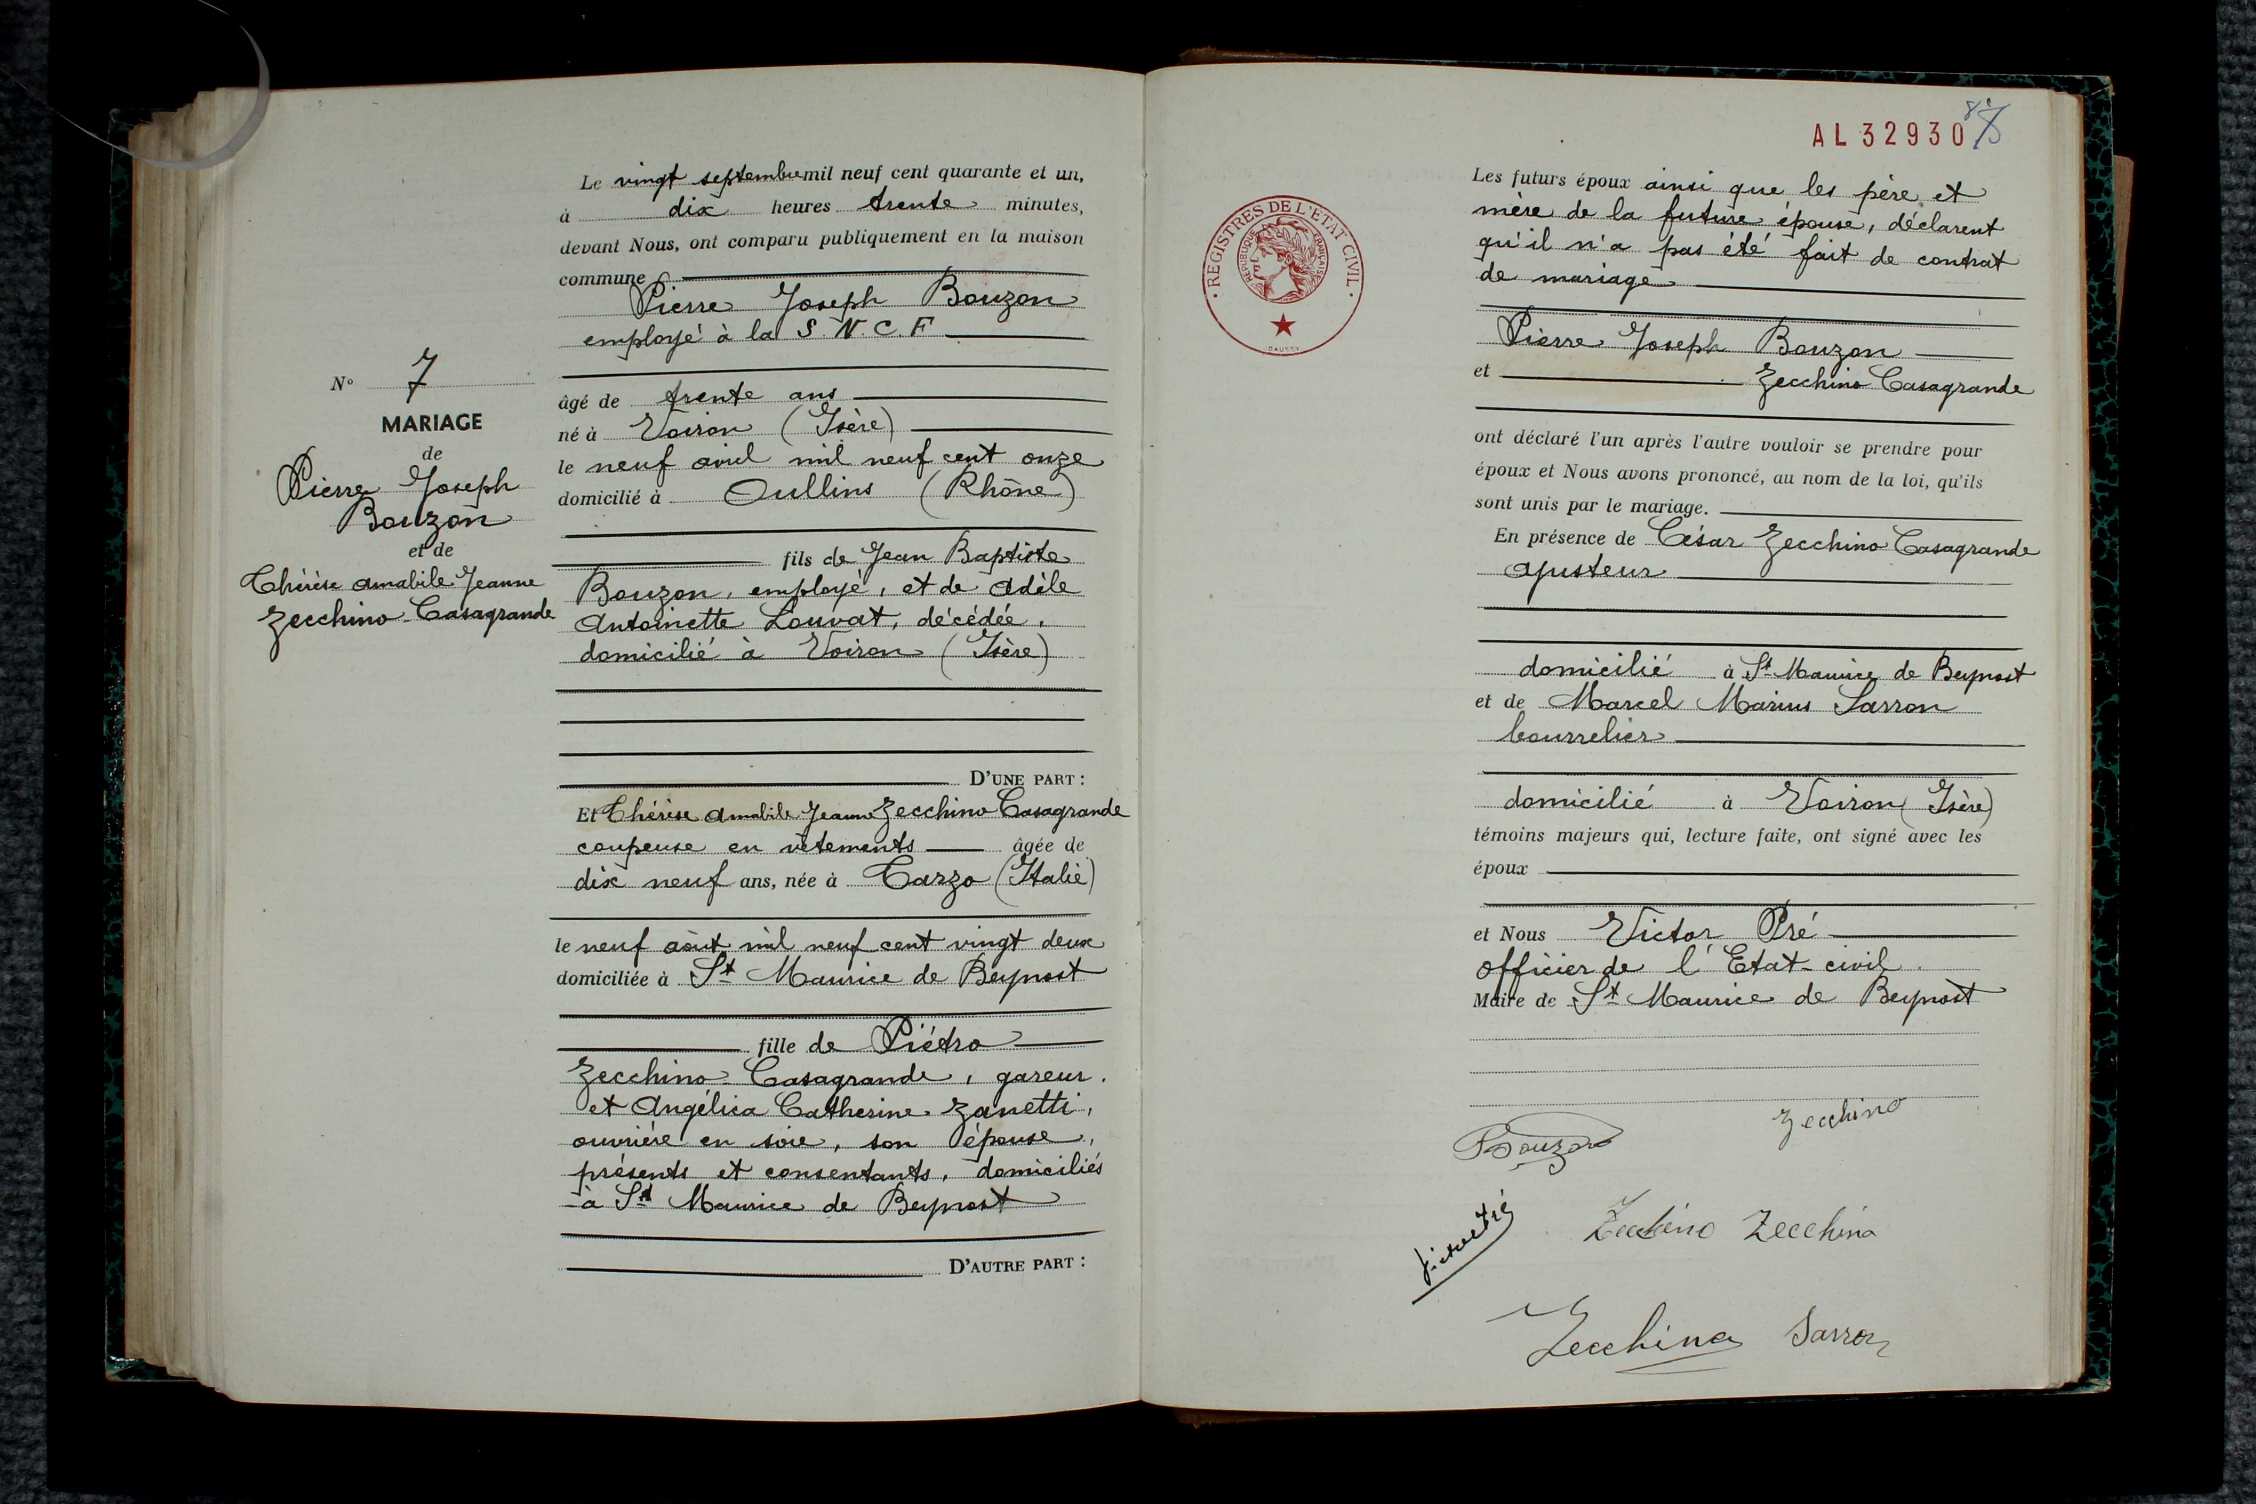 Le vingt septembre mil neuf cent quarante et un,
à dix heures trente minutes,
devant Nous, ont comparu publiquement en la maison
commune
Pierre Joseph Bouzon
employé à la S.N.C.F
âgé de trente ans
né à Voiron (Isère)
le neuf avril mil neuf cent onze
domicilié à Oullins (Rhône)
fils de Jean Baptiste
Bouzon, employé, et de Adèle
Antoinette Louvat, décédée,
domicilié à Voiron (Isère)
D'UNE PART :
Et Thérèse Amabile Jeanne Zecchino Casagrande
coupeuse en vêtements âgée de
dix neuf ans, née à Carzo (Italie)
le neuf août mil neuf cent vingt deux
domiciliée à St Maurice de Beynost
fille de Piétro
Zecchino-Casagrande, gareur.
et Angélica Catherine Zanetti,
ouvrière en soie, son épouse,
présents et consentants, domiciliés
à St Maurice de Beynost
D'AUTRE PART :
N° 7
MARIAGE
de
Pierre Joseph
Bouzon
et de
Thérèse Amabile Jeanne
Zecchino-Casagrande
AL 32930
REGISTRES DE L'ETAT CIVIL
REPUBLIQUE FRANÇAISE
DAUSSY
Les futurs époux ainsi que les père et
mère de la future épouse, déclarent
qu'il n'a pas été fait de contrat
de mariage
Pierre Joseph Bouzon
et Zecchino Casagrande
ont déclaré l'un après l'autre vouloir se prendre pour
époux et Nous avons prononcé, au nom de la loi, qu'ils
sont unis par le mariage.
En présence de César Zecchino Casagrande
ajusteur
domicilié à St Maurice de Beynost
et de Marcel Marius Sarron
bourrelier
domicilié à Voiron (Isère)
témoins majeurs qui, lecture faite, ont signé avec les
époux
et Nous Victor Pré
officier de l'Etat-civil.
Maire de St Maurice de Beynost
Zecchino
Bouzon
Victor Pré
Zecchino Zecchino
Zecchino Sarron